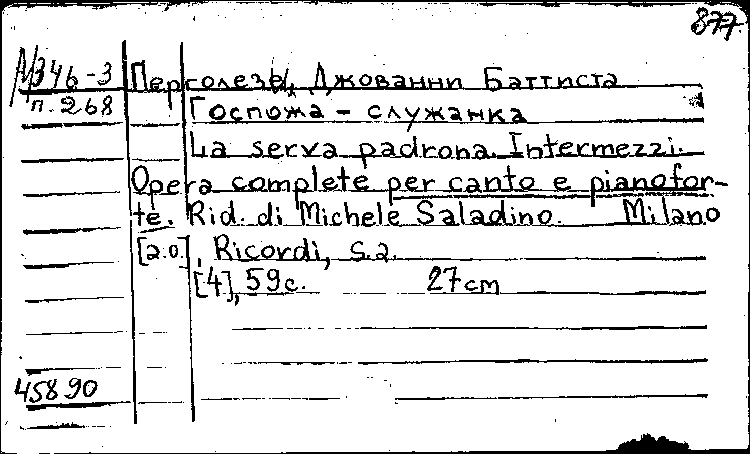 877
М346-3
п. 268
Перголезы, Джованни Баттиста
Госпожа - служанка
La serva padrona. Intermezzi.
Opera complete per canto e pianofor-
te. Rid. di Michele Saladino. Milano
[2.0.], Ricordi, s.a.
[4], 59c. 27cm
45890